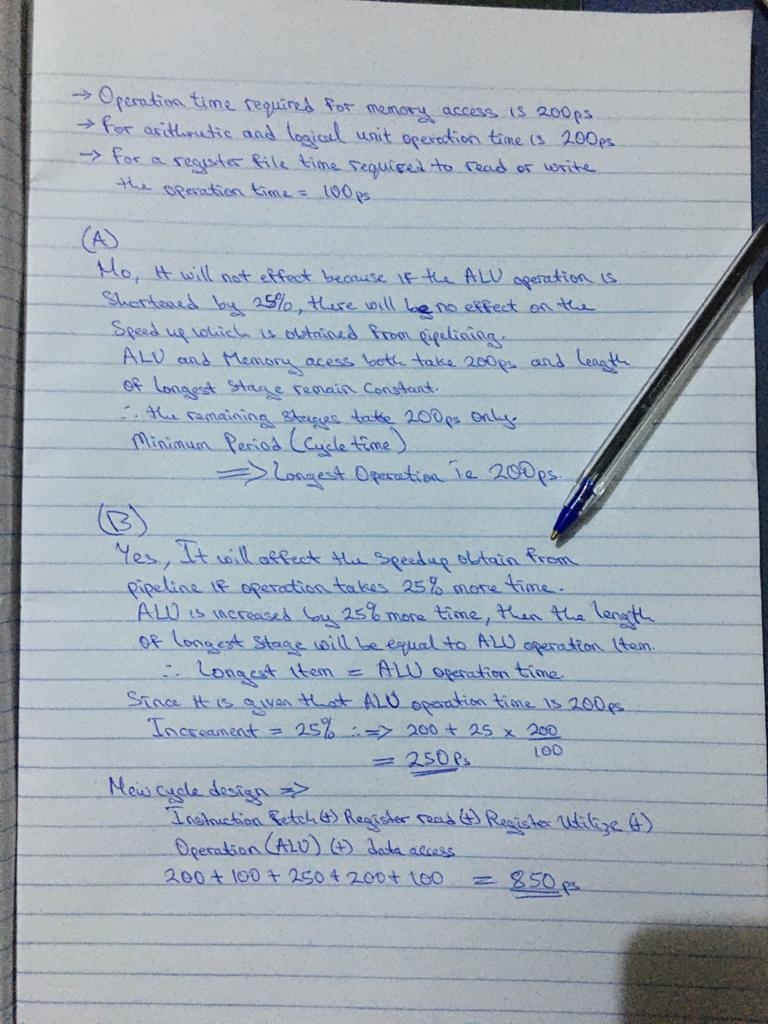 → Operation time required for memory access is 200ps
→ For arithmetic and logical unit operation time is 200ps
→ For a register file time required to read or write
the operation time = 100ps
(A)
No, It will not effect because if the ALU operation is
Shortened by 25%, there will be no effect on the
Speed up which is obtained from pipelining.
ALU and Memory acess both take 200ps and length
of longest stage remain constant.
∴ the remaining stages take 200ps only.
Minimum Period (Cycle time)
⇒ Longest Operation ie 200ps.
(B)
Yes, It will affect the speedup obtain from
pipeline if operation takes 25% more time.
ALU is increased by 25% more time, then the length
of longest stage will be equal to ALU operation Item.
∴ Longest item = ALU operation time
Since it is given that ALU operation time is 200ps
Increament = 25% ∴ ⇒ 200 + 25 x 200/100
= 250Ps
New cycle design ⇒
Instruction fetch (+) Register read (+) Register Utilize (+)
Operation (ALU) (+) data access
200 + 100 + 250 + 200 + 100 = 850 ps